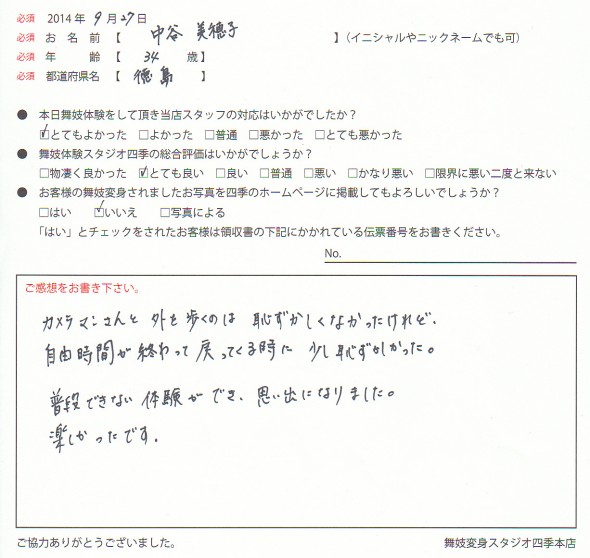 必須 2014年 9月 27日
必須 お名前【 中谷 美穂子 】（イニシャルやニックネームでも可）
必須 年齢【 34 歳】
必須 都道府県名【 徳島 】
● 本日舞妓体験をして頂き当店スタッフの対応はいかがでしたか？
☑とてもよかった □よかった □普通 □悪かった □とても悪かった
● 舞妓体験スタジオ四季の総合評価はいかがでしょうか？
□物凄く良かった ☑とても良い □良い □普通 □悪い □かなり悪い □限界に悪い二度と来ない
● お客様の舞妓変身されましたお写真を四季のホームページに掲載してもよろしいでしょうか？
□はい ☑いいえ □写真による
「はい」とチェックをされたお客様は領収書の下記にかかれている伝票番号をお書きください。
No.
ご感想をお書き下さい。
カメラマンさんと 外を歩くのは 恥ずかしくなかったけれど、
自由時間が終わって 戻ってくる時に 少し恥ずかしかった。
普段できない 体験ができ、思い出になりました。
楽しかったです。
ご協力ありがとうございました。
舞妓変身スタジオ四季本店